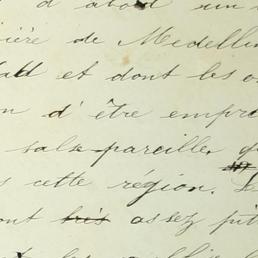 d'abord un
ière de Medellin
et dont les o
n d'être empre
salsepareille, q
s cette région.
ont très assez pit